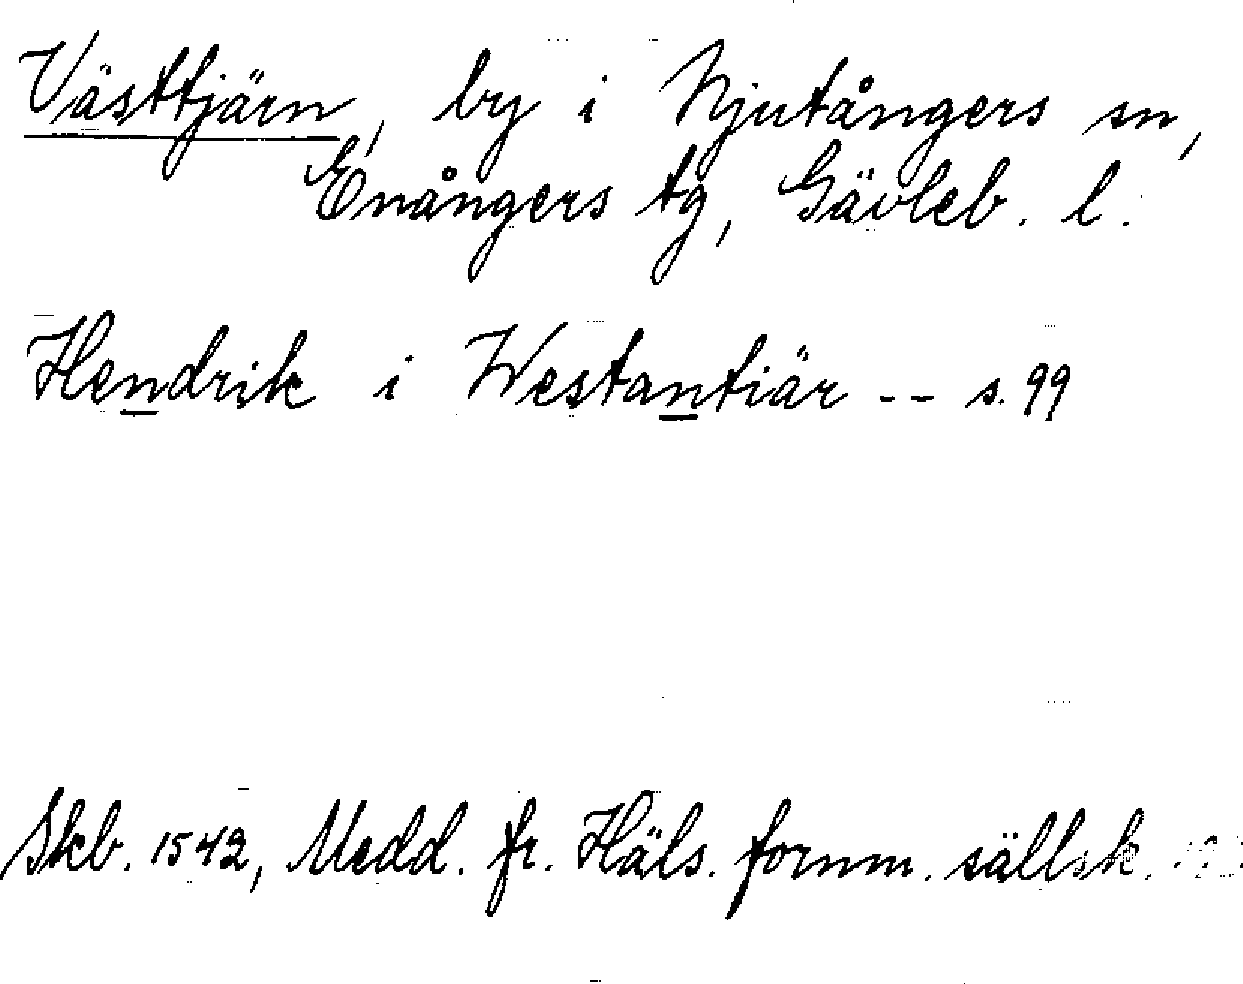 Västtjärn, by i Njutångers sn,
Enångers tg, Gävleb. l.
Hendrik i Westantiär -- s. 99
Skb. 1542, Medd. fr. Häls. fornm. sällsk.